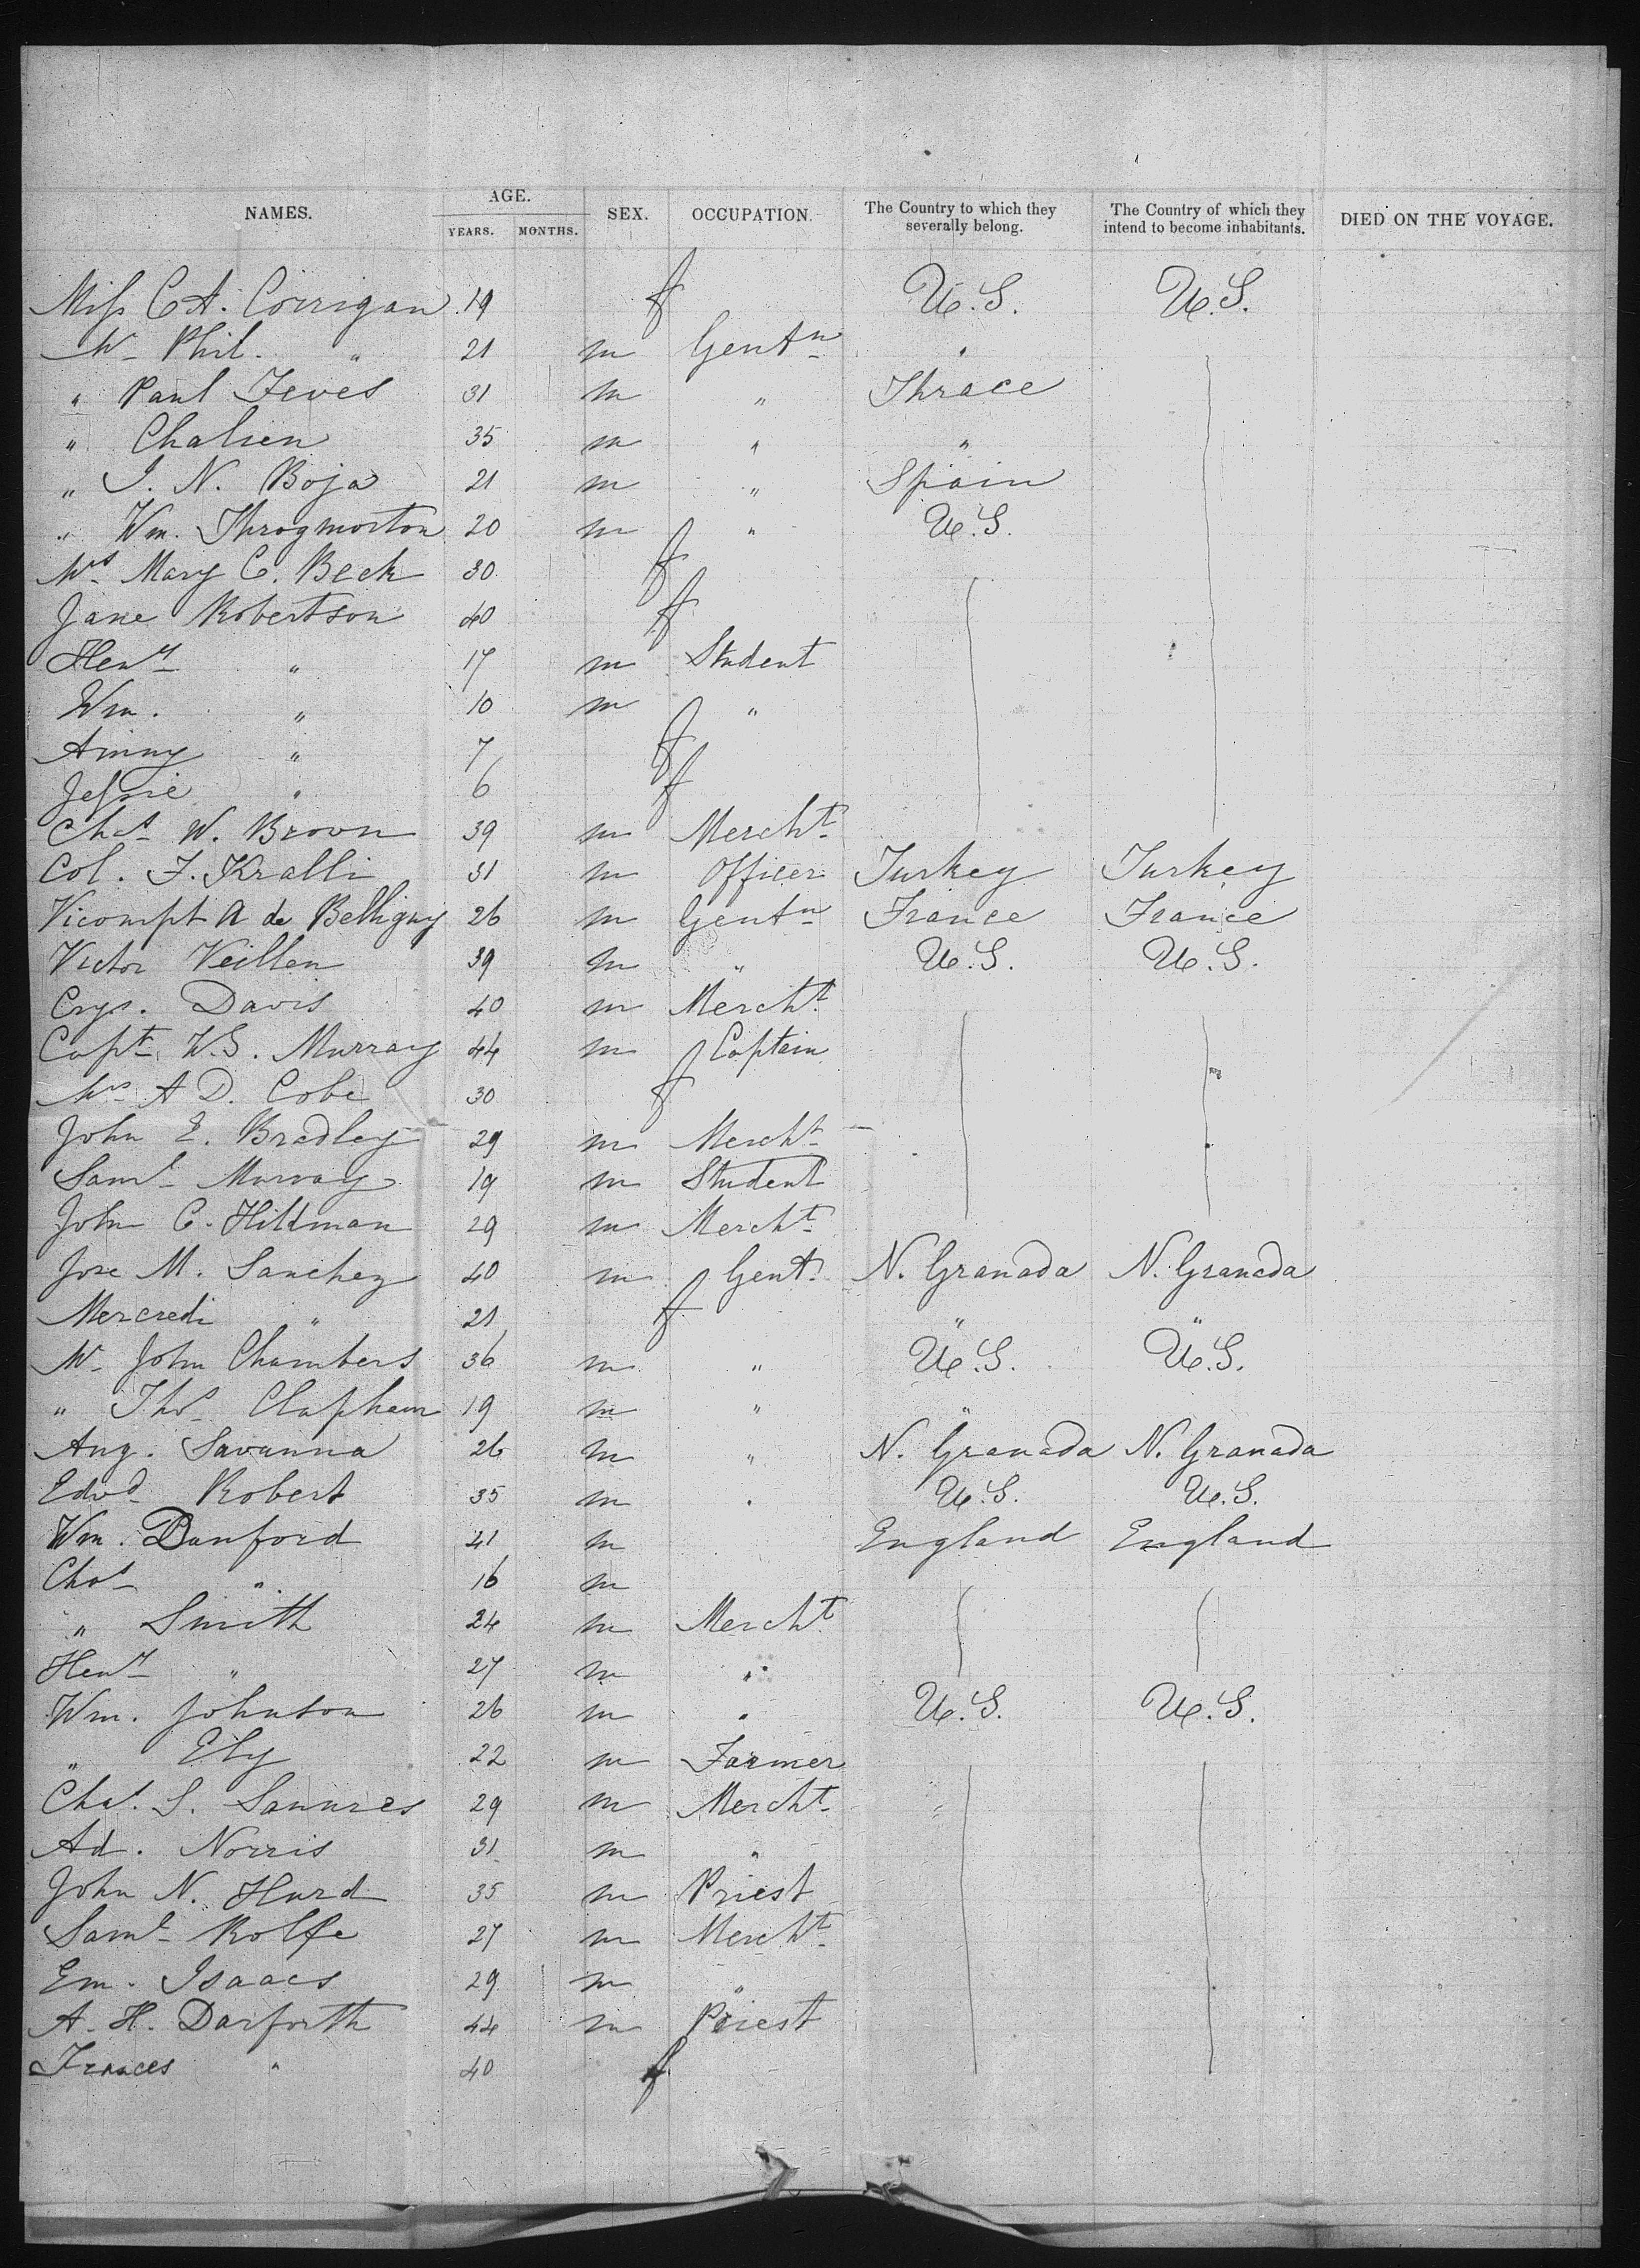 NAMES. AGE. YEARS. MONTHS. SEX. OCCUPATION. The Country to which they severally belong. The Country of which they intend to become inhabitants. DIED ON THE VOYAGE.
Miss C A. Corrigan 19 f U.S. U.S.
Mr Phil. " 21 m Gentn "
" Paul Feves 31 m " Thrace
" Chalien 35 m " "
" J. N. Boja 21 m " Spain
" Wm. Throgmorton 20 m " U.S.
Mrs Mary C. Beck 30 f
Jane Robertson 40 f
Heny " 17 m Student
Wm. " 10 m "
Ammy " 7 f
Jessie " 6 f
Chas W. Brown 39 m Mercht
Col. F. Kralli 31 m Officer Turkey Turkey
Vicompt A de Belligny 26 m Gentn France France
Victor Veillen 39 m " U.S. U.S.
Crys. Davis 40 m Mercht
Capt W.S. Murray 44 m Captain
Mrs A D. Cobe 30 f
John E. Bradley 29 m Mercht
Saml Murray 19 m Student
John C. Hildman 29 m Mercht
Jose M. Sanchez 40 m Gent N. Granada N. Granada
Mercredi " 21 f " "
Mr John Chambers 36 m " U.S. U.S.
" Thos Clapham 19 m " "
Aug. Savanna 26 m " N. Granada N. Granada
Edwd Robert 35 m " U.S. U.S.
Wm. Danford 41 m England England
Chas " 16 m
" Smith 24 m Mercht
Heny " 27 m "
Wm. Johnson 26 m " U.S. U.S.
" Ely 22 m Farmer
Chas. S. Saunres 29 m Mercht
Ad. Norris 31 m "
John N. Hurd 35 m Priest
Saml Rolfe 27 m Mercht
Em. Isaacs 29 m "
A. H. Darforth 44 m Priest
Frances " 40 f